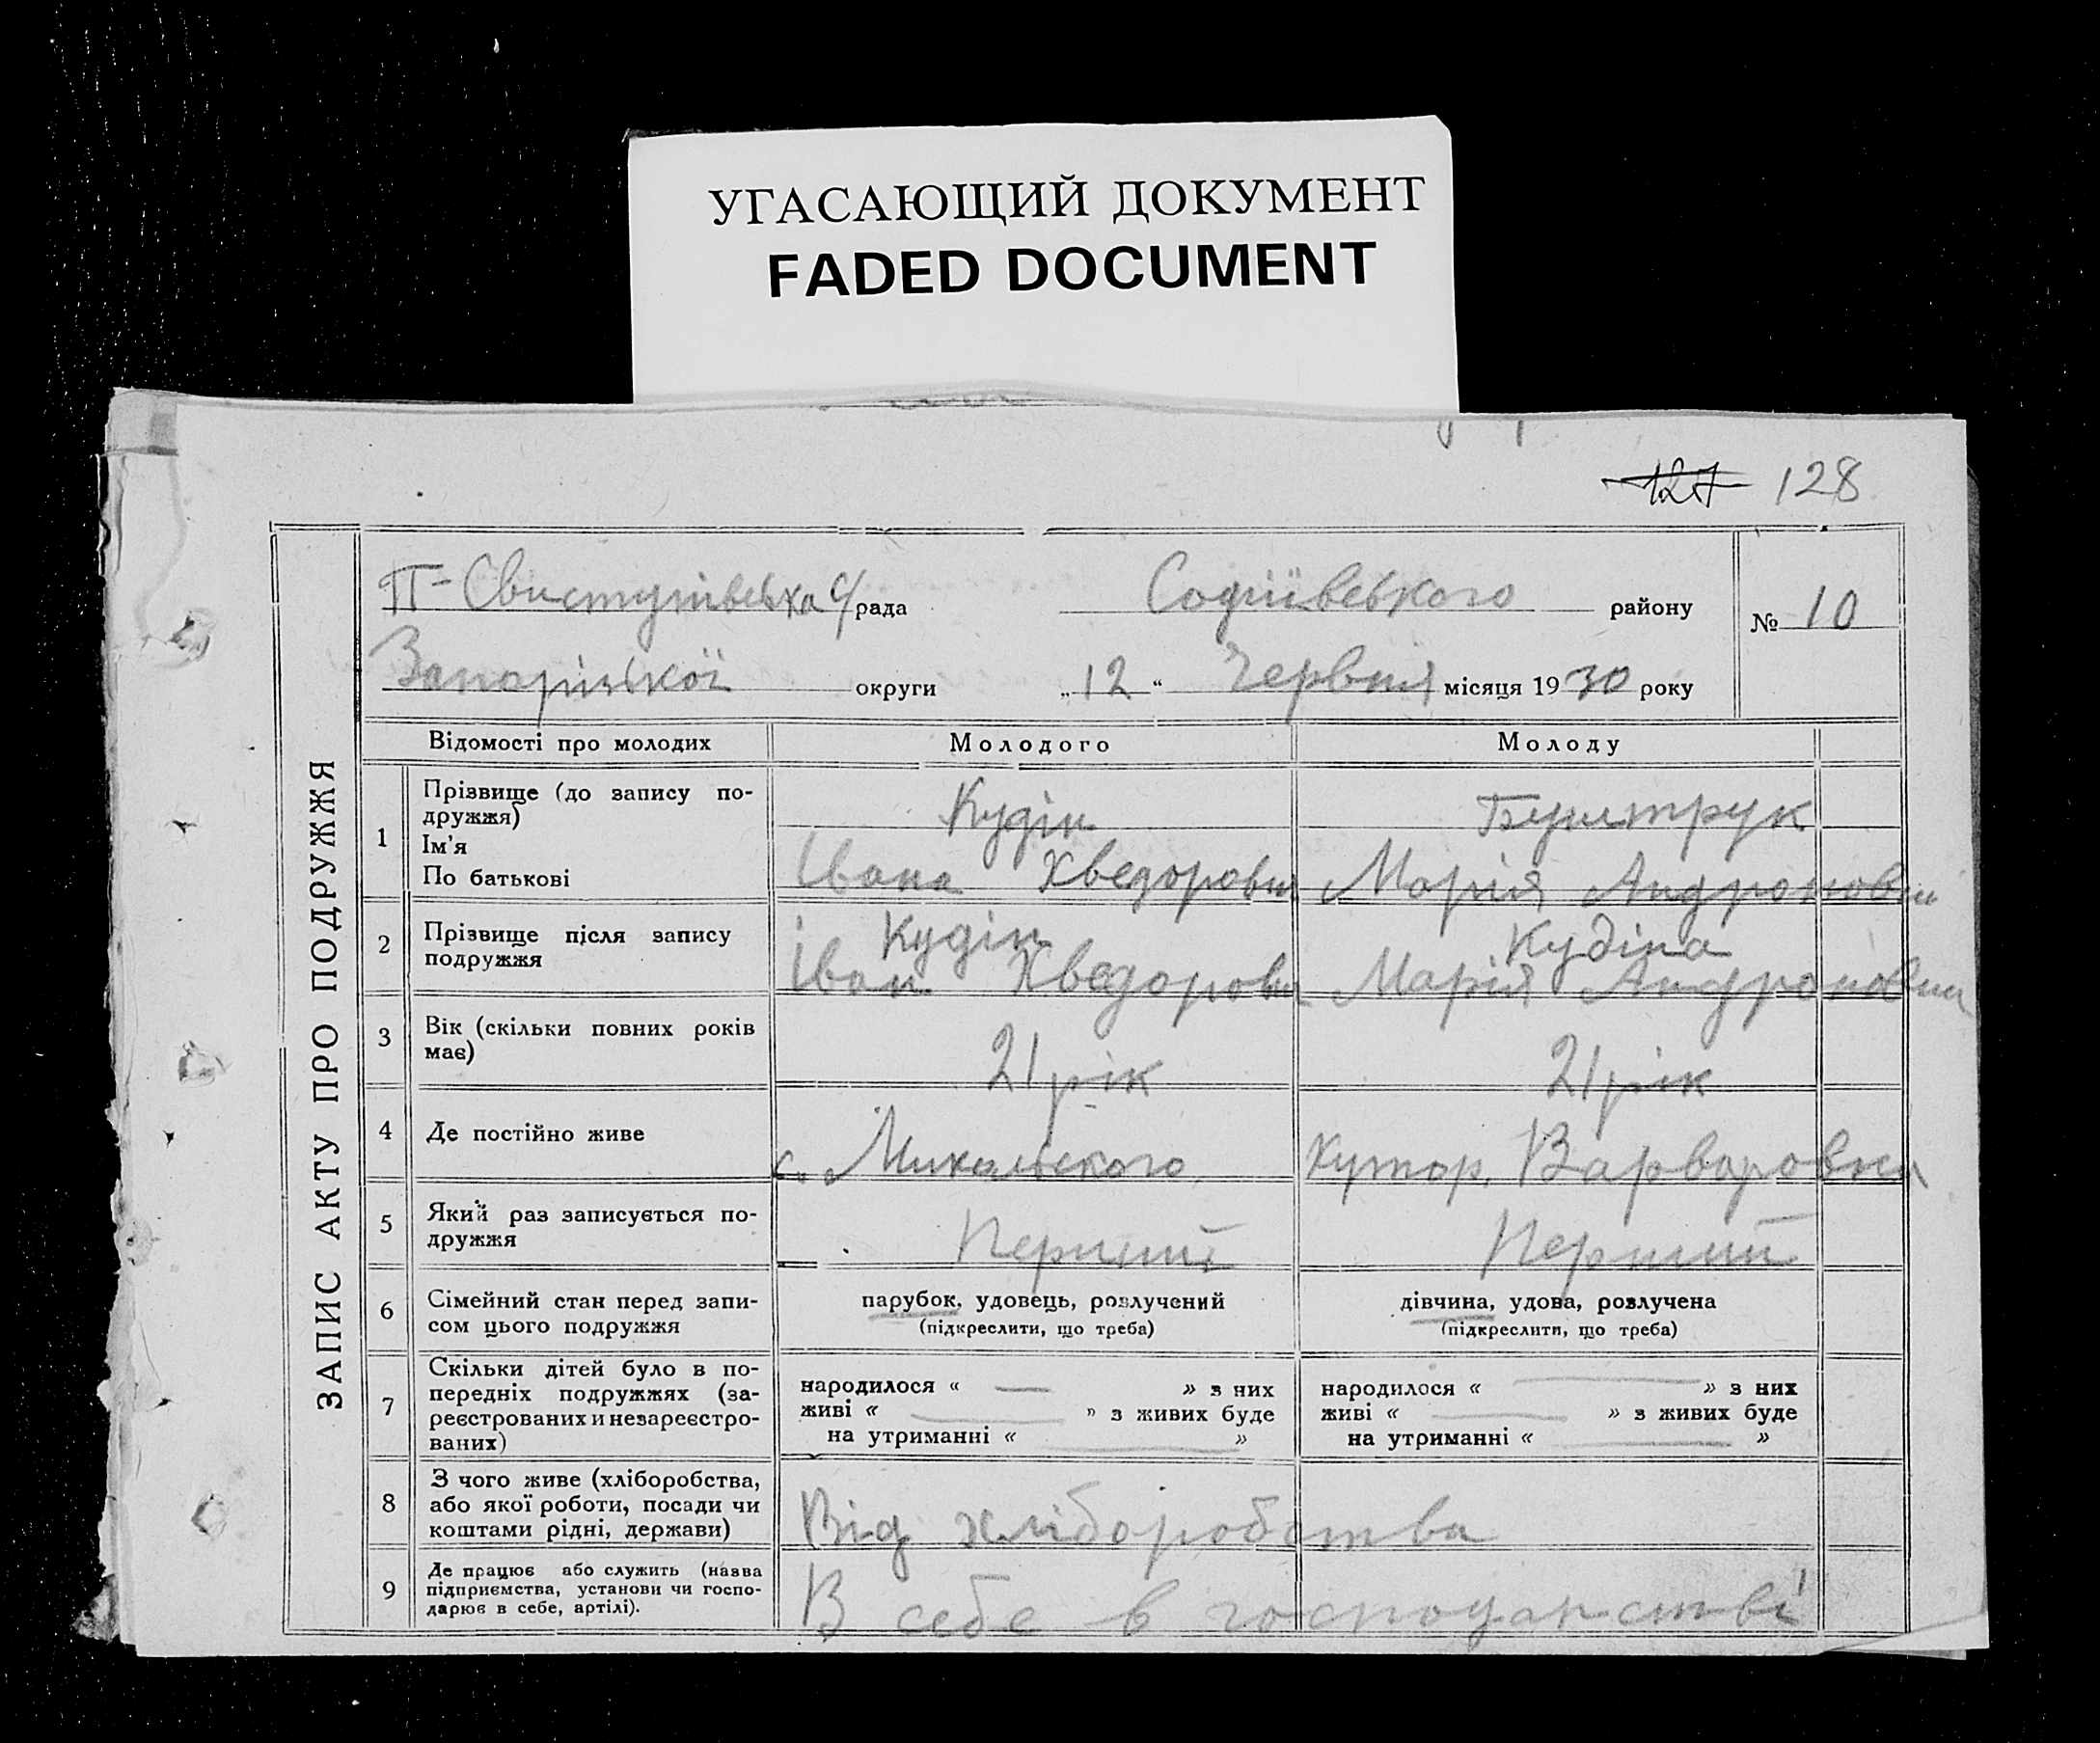 УГАСАЮЩИЙ ДОКУМЕНТ
FADED DOCUMENT
127 128
ЗАПИС АКТУ ПРО ПОДРУЖЖЯ
П-Свистунівська С/рада Софіївського району
№ 10
Запоріської округи „12“ Червня місяця 1930 року
Відомості про молодих Молодого Молоду
1 Прізвище (до запису по-
дружжя) Кудін
Ім'я
По батькові Івана Хведорович Марія Андроновна
2 Прізвище після запису
подружжя Кудін Кудіна
Іван Хведорович Марія Андроновна
3 Вік (скільки повних років
має) 21 рік 21 рік
4 Де постійно живе с. Михальского Хутор. Варваровка
5 Який раз записується по-
дружжя Перший Перший
6 Сімейний стан перед запи-
сом цього подружжя
парубок, удовець, розлучений дівчина, удова, розлучена
(підкреслити, що треба) (підкреслити, що треба)
7 Скільки дітей було в по-
передніх подружжях (за-
реєстрованих и незареєстро-
ваних)
народилося « — » з них народилося « — » з них
живі « — » з живих буде живі « — » з живих буде
на утриманні « — » на утриманні « — »
8 З чого живе (хліборобства,
або якої роботи, посади чи
коштами рідні, держави) Від хліборобства
9 Де працює або служить (назва
підприємства, установи чи госпо-
дарює в себе, артілі). В себе в господарстві